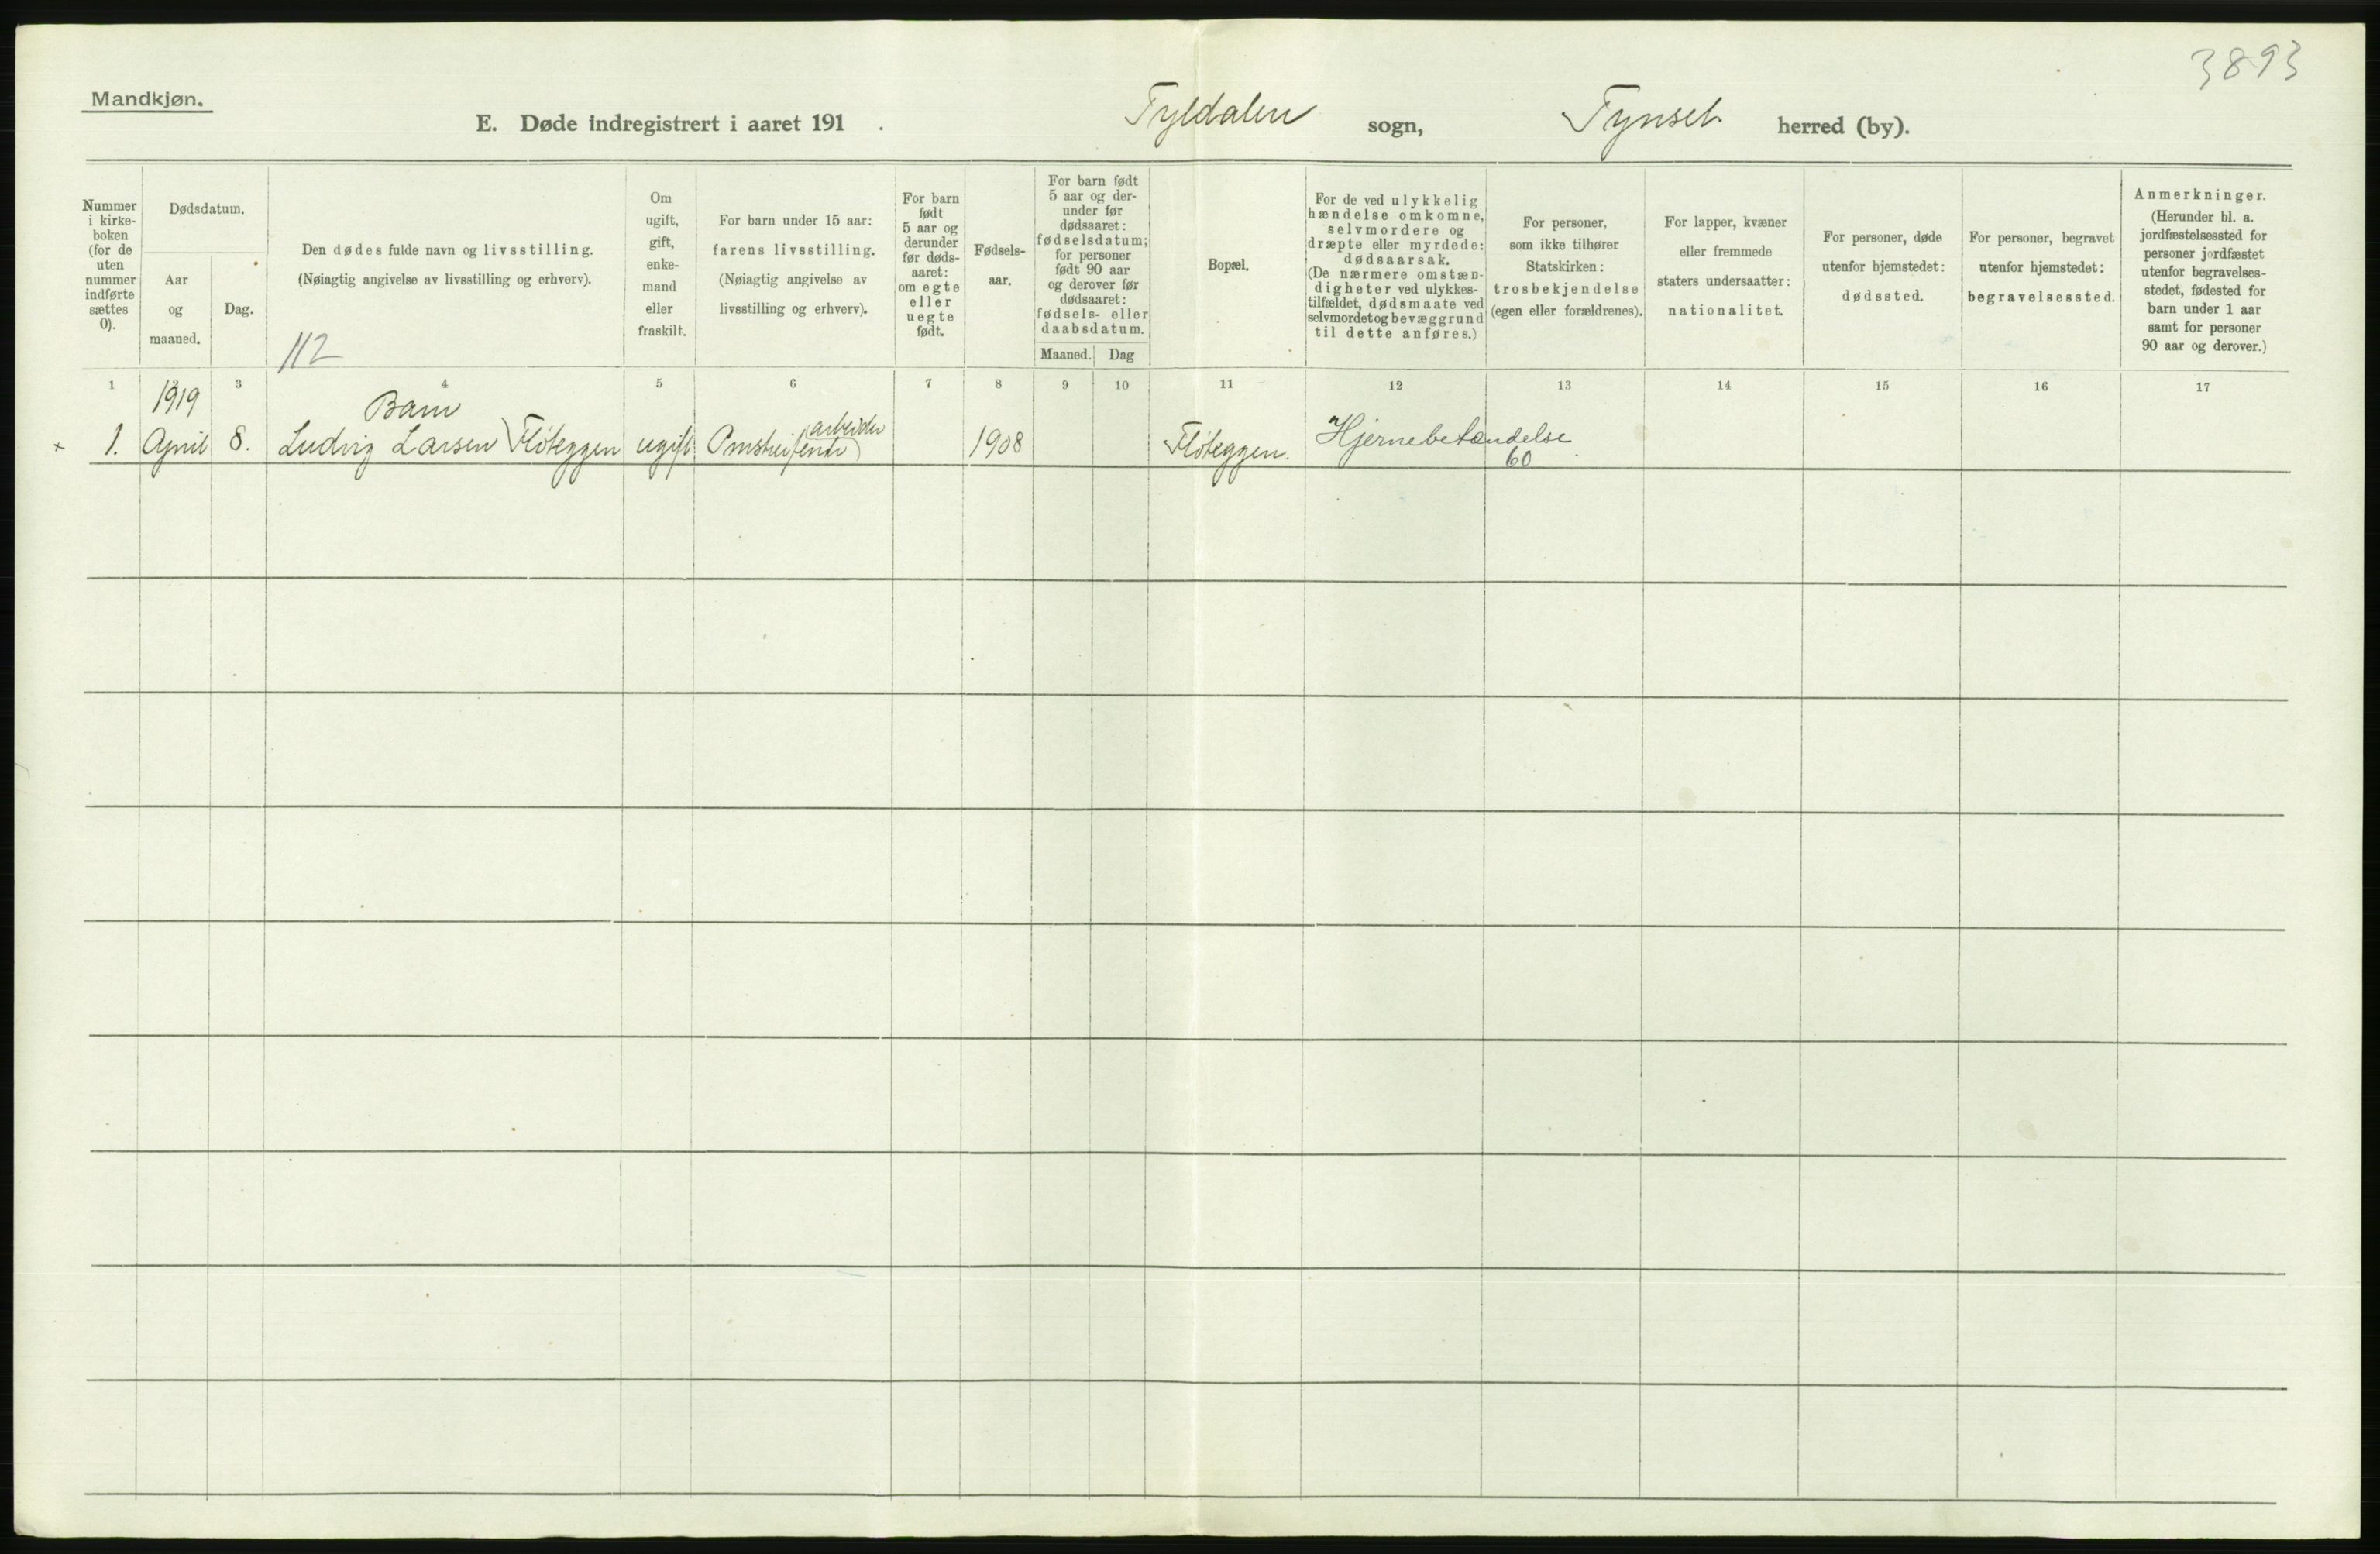 3893
Mandkjøn.
E. Døde indregistrert i aaret 191 . Tyldalen sogn, Tynset herred (by).
Nummer
i kirke-
boken
(for de
uten
nummer
indførte
sættes
0).
Dødsdatum.
Aar
og
maaned.
Dag.
Den dødes fulde navn og livsstilling.
(Nøiagtig angivelse av livsstilling og erhverv).
112
Om
ugift,
gift,
enke-
mand
eller
fraskilt.
For barn under 15 aar:
farens livsstilling.
(Nøiagtig angivelse av
livsstilling og erhverv).
For barn
født
5 aar og
derunder
før døds-
aaret:
om egte
eller
uegte
født.
Fødsels-
aar.
For barn født
5 aar og der-
under før
dødsaaret:
fødselsdatum;
for personer
født 90 aar
og derover før
dødsaaret:
fødsels- eller
daabsdatum.
Maaned. Dag
Bopæl.
For de ved ulykkelig
hændelse omkomne,
selvmordere og
dræpte eller myrdede:
dødsaarsak.
(De nærmere omstæn-
digheter ved ulykkes-
tilfældet, dødsmaate ved
selvmordet og bevæggrund
til dette anføres.)
For personer,
som ikke tilhører
Statskirken:
trosbekjendelse
(egen eller forældrenes).
For lapper, kvæner
eller fremmede
staters undersaatter:
nationalitet.
For personer, døde
utenfor hjemstedet:
dødssted.
For personer, begravet
utenfor hjemstedet:
begravelsessted.
Anmerkninger.
(Herunder bl. a.
jordfæstelsessted for
personer jordfæstet
utenfor begravelses-
stedet, fødested for
barn under 1 aar
samt for personer
90 aar og derover.)
1 2 3 4 5 6 7 8 9 10 11 12 13 14 15 16 17
1919 Barn
arbeider
× 1. April 8. Ludvig Larsen Fløteggen ugift Omstreifende) 1908 Fløteggen. Hjernebetændelse
60